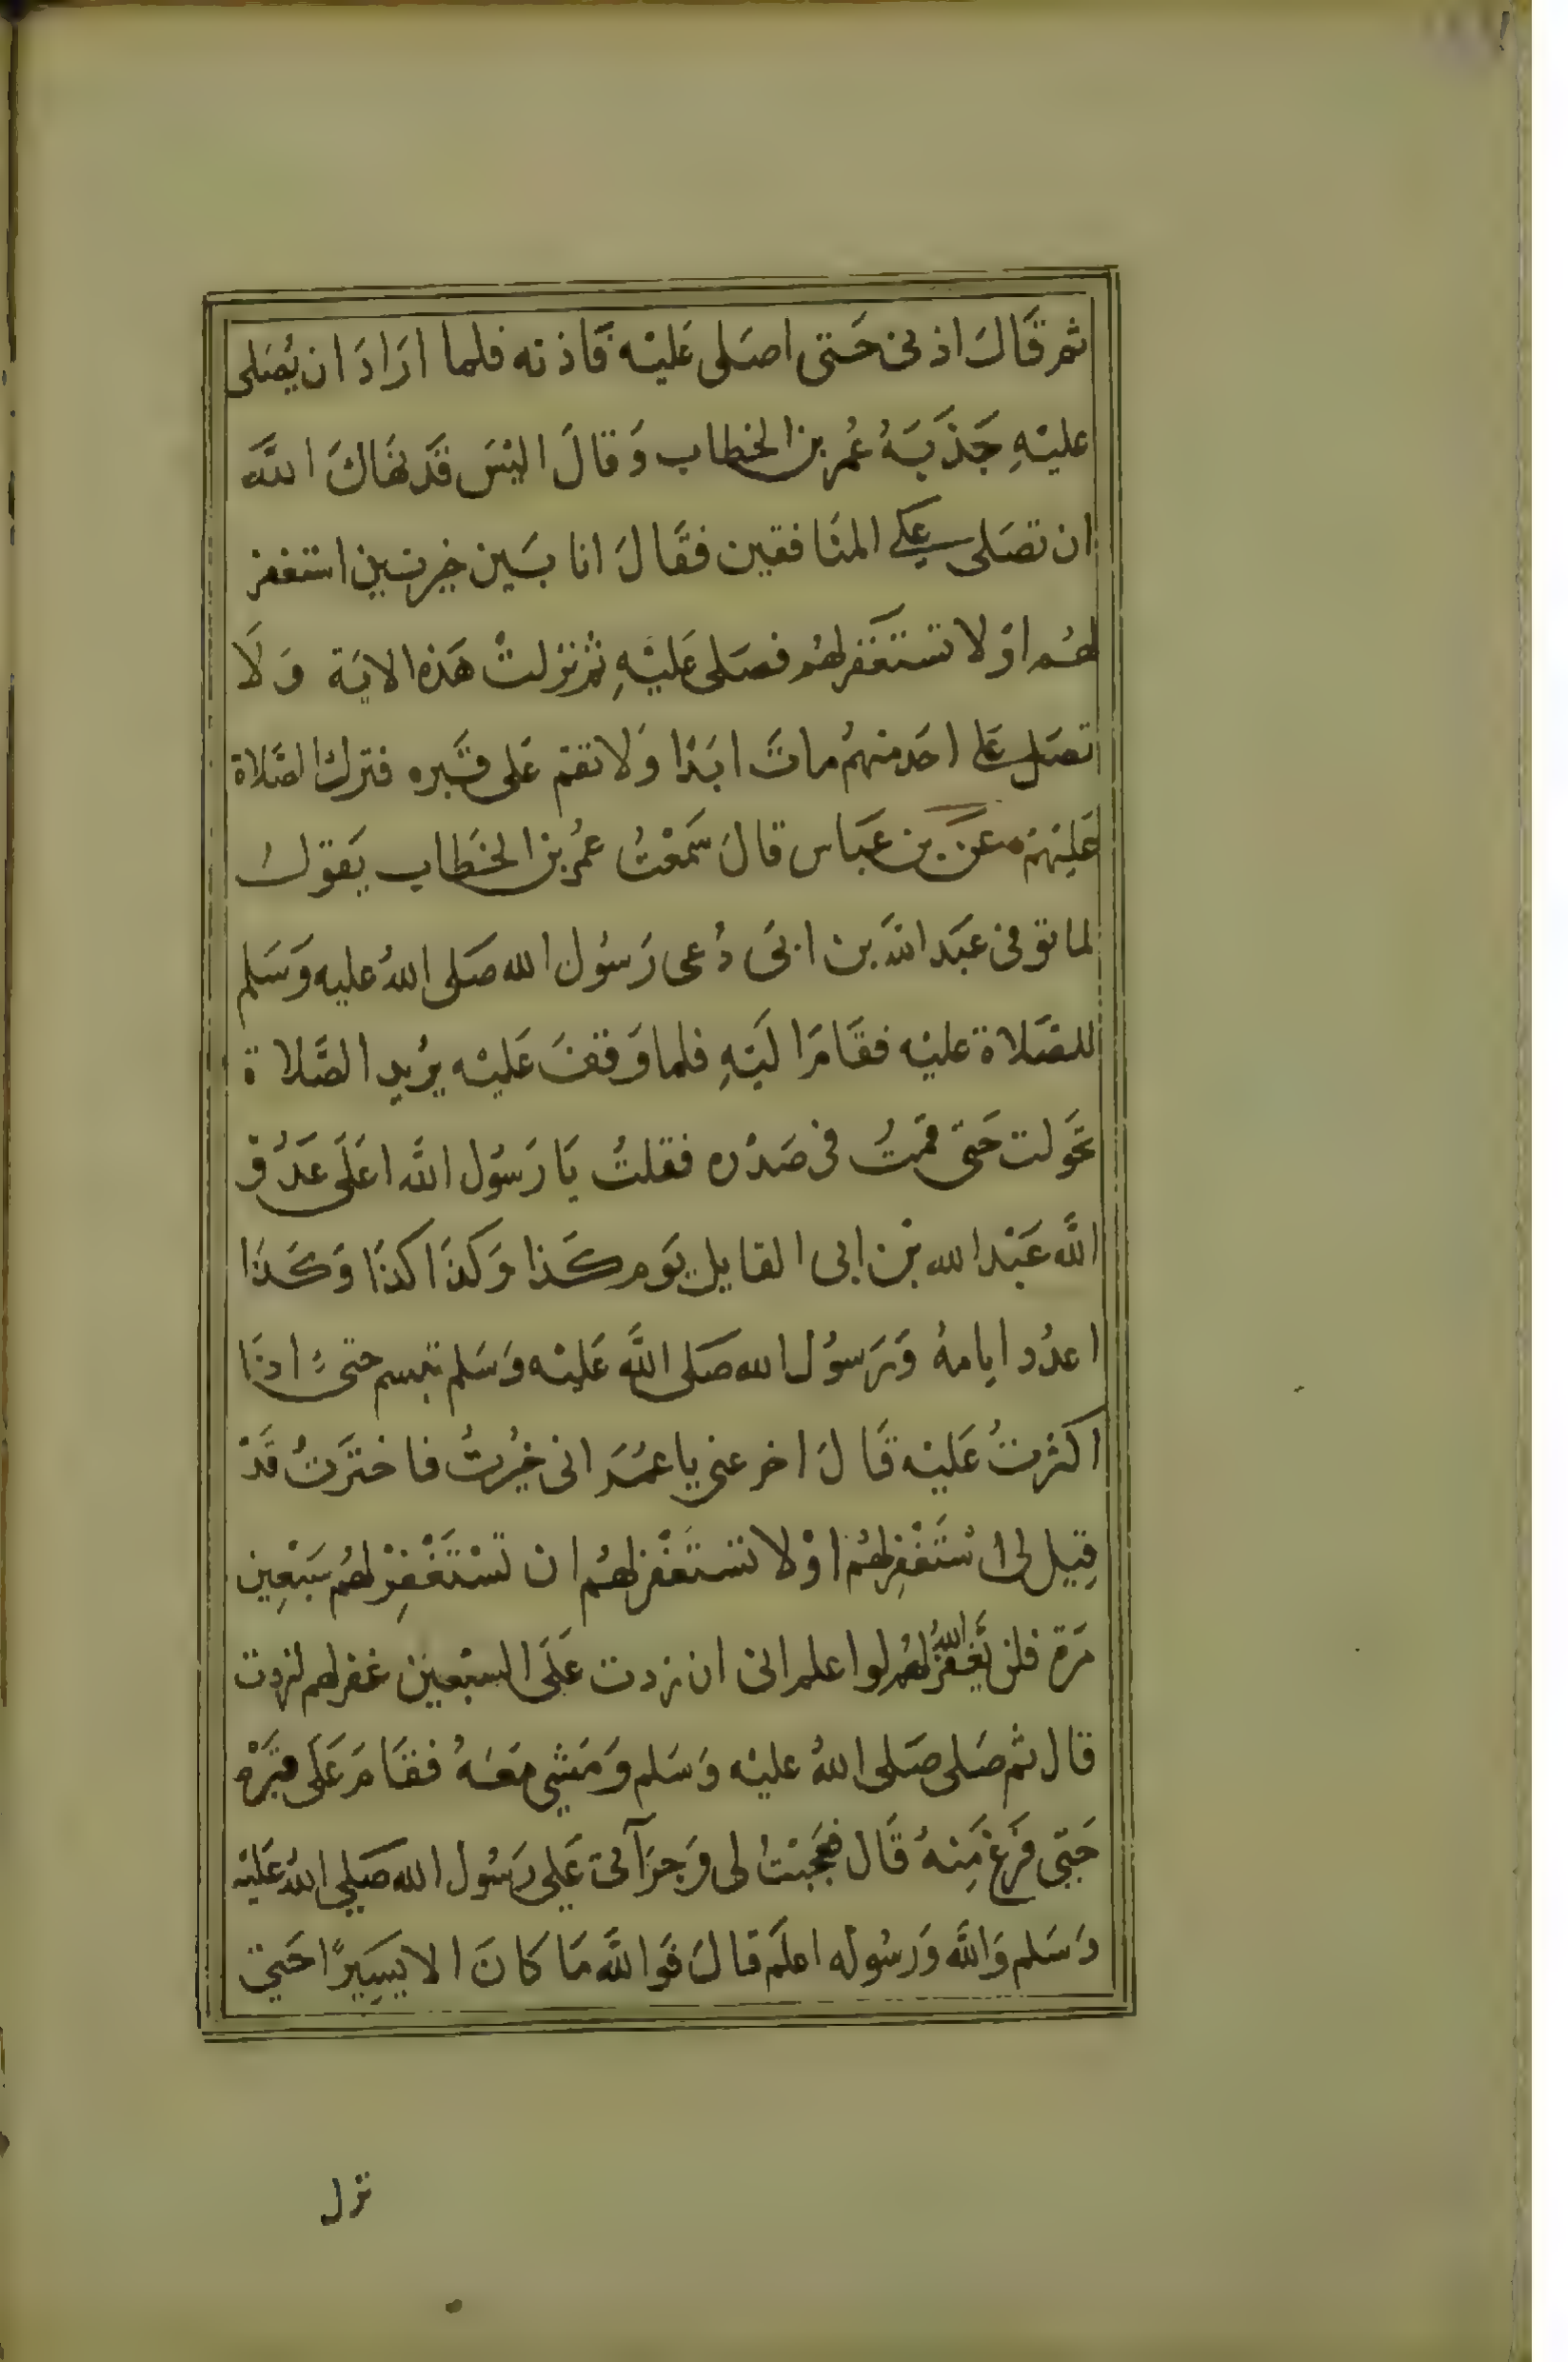 ثم قَالَ اذني حَتى اصَلى عَليْه فَاذنه فلما ارَادَ ان يُصَلى
عليْهِ جَذبَهُ عُمر بن الخطاب وَقالَ اليْسَ قَد نهَاكَ اللَّه
ان تصَلى على المنَافقين فقَالَ انا بَين خيرتين استغفر
لهُم اوْ لا تستَغفر لهُم فصَلى عَليْهِ ثم نزلتْ هَذه الايَة وَلَا
تصَل على احَد منهُم ماتَ ابَدًا وَلا تقم عَلى قَبره فترك الصَّلاة
عَليْهم عَن بن عَبَاس قالَ سَمعْتُ عُمر بن الخَطاب يَقولُ
لما توفى عَبَد اللَّه بن ابَى دُعى رَسُول الله صَلى اللهُ عليه وَسَلم
للصَّلاة عليْه فقَامَ اليْهِ فلما وَقفَ عَليْه يرُيد الصَّلاة
تحَولت حَتى قمتُ فى صَدْره فقلتُ يَا رَسُول اللَّه اعَلَى عَدُوّ
اللَّه عَبْد الله بْن ابى القايل يَوم كَذا وَكذَا كذَا وَكَذَا
اعدُد ايامهُ وَرَسوُل الله صَلى اللَّه عَليْه وَسَلم تبسم حتىَ اذَا
اكثرتُ عَليْه قَالَ اخر عنى يا عُمَر انى خُيرتُ فاختَرتُ قَدْ
قِيل لى اسْتَغْفِر لهُم اوْ لا تستَغْفر لهُم ان تسْتَغْفِرْ لهُم سَبْعِين
مَرة فلن يَّغفرُ اللهُ لهُم لوا علم انى ان زدت عَلَى السبْعين غفر لهم لزدت
قال ثم صَلى صَلى اللهُ عليْه وَسَلم وَمَشي مَعَهُ فقَامَ عَلَى قبَرْه
حَتى فَرغ مِنهُ قَال فعجَبْتُ لى وَجرَآتى عَلى رَسُول الله صَلى اللهُ عَليْه
وَسَلم وَاللَّه وَرَسُوله اعلَم قالَ فَوَاللَّه مَا كانَ الا يَسِيَرًا حَتى
نزل